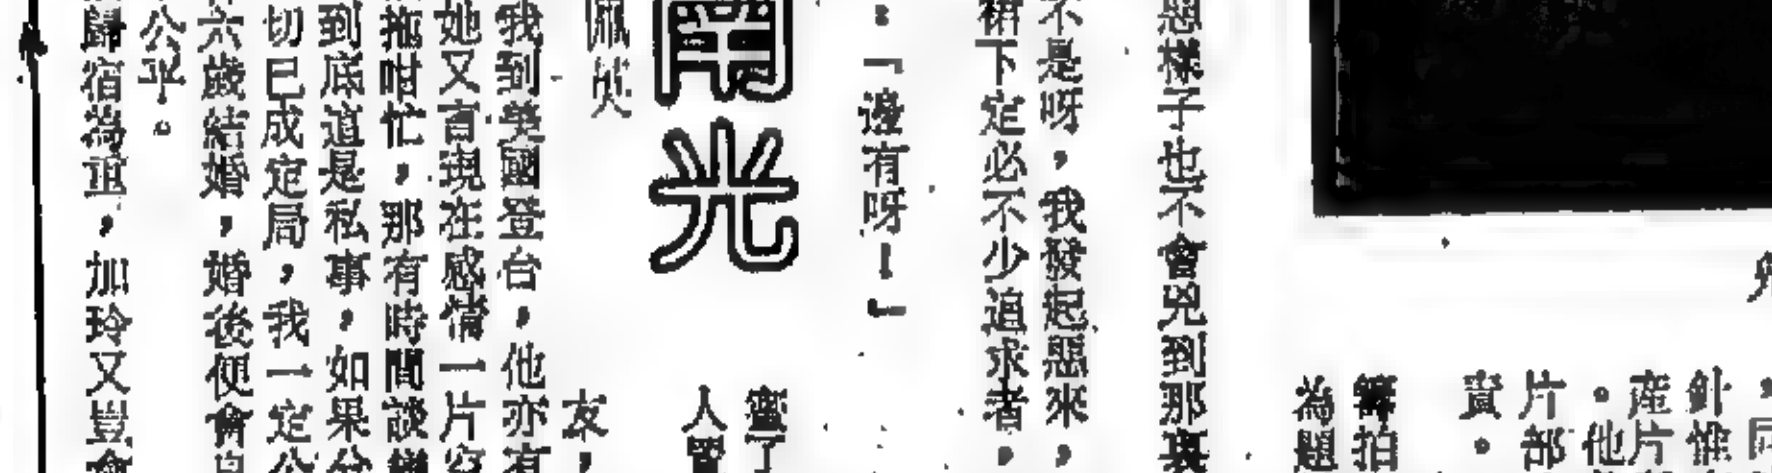 針惟
產片
。他
片部
賣。
籌拍
為題
惡樣子也不會兇到那裏
不是呀，我發起惡來，
裙下定必不少追求者。
：「邊有呀！」
蜜了
人
光
佩
友，
我到美國登台，他亦有
她又言現在感情一片空
拖咁忙，那有時間談戀
到底這是私事，如果分
切已成定局，我一定公
六歲結婚，婚後便會息
公平。
歸宿為重，加玲又豈會